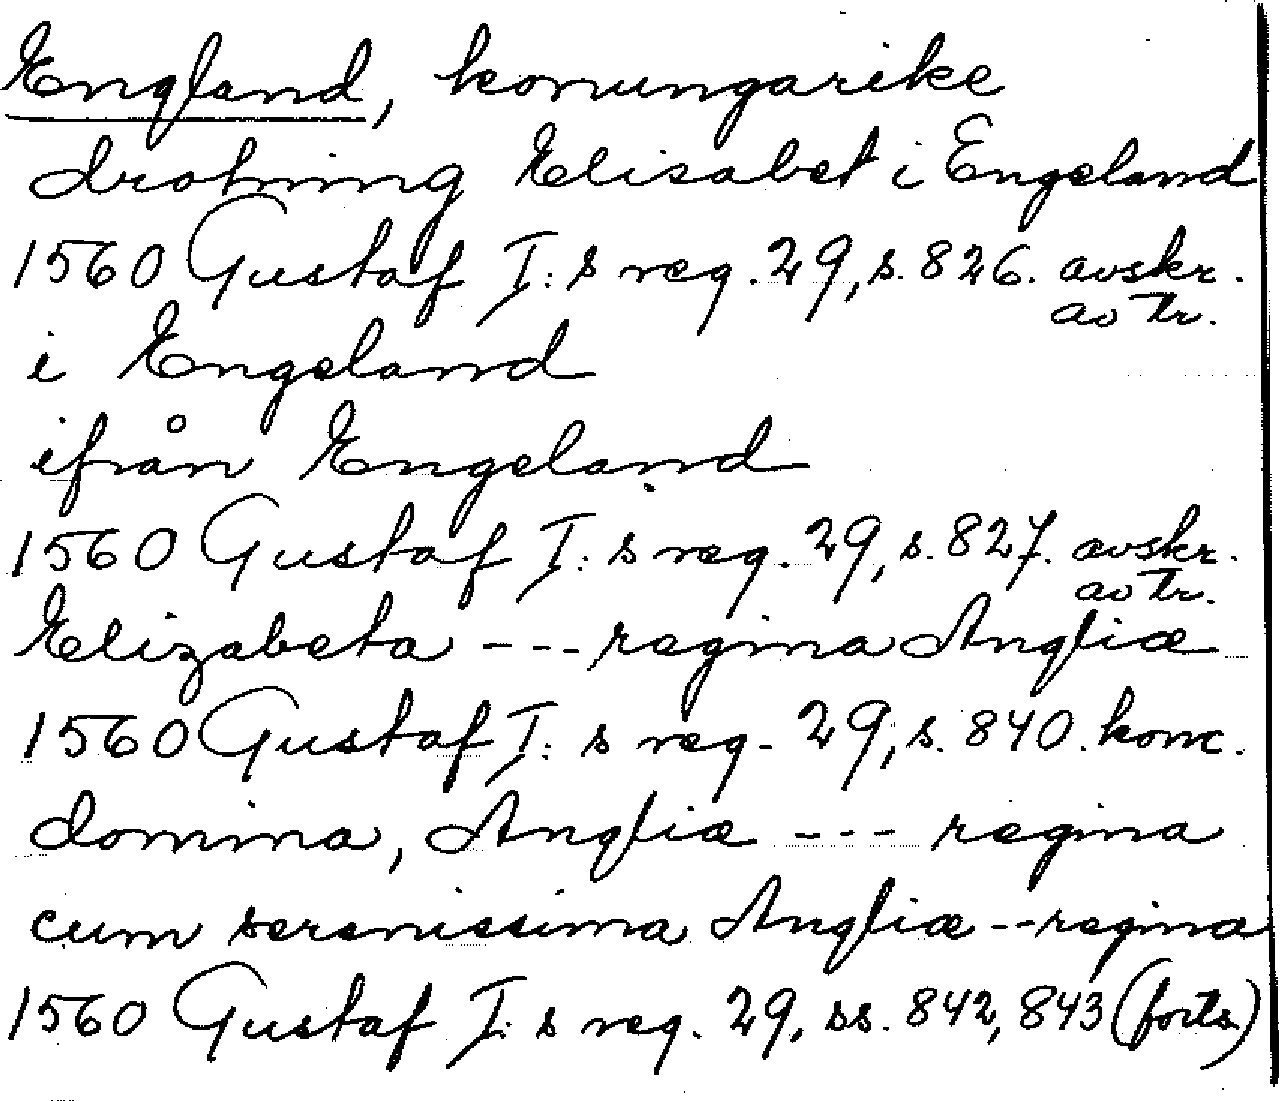 England, konungarike
drotning Elisabet i Engeland
1560 Gustaf I:s reg. 29, s. 826. avskr.
av tr.
i Engeland
ifrån Engeland
1560 Gustaf I:s reg. 29, s. 827. avskr.
av tr.
Elizabeta --- regina Angliæ
1560 Gustaf I:s reg. 29, s. 840. konc.
domina, Angliæ --- regina
cum serenissima Angliæ -- regina
1560 Gustaf I:s reg. 29, ss. 842, 843 (forts.)